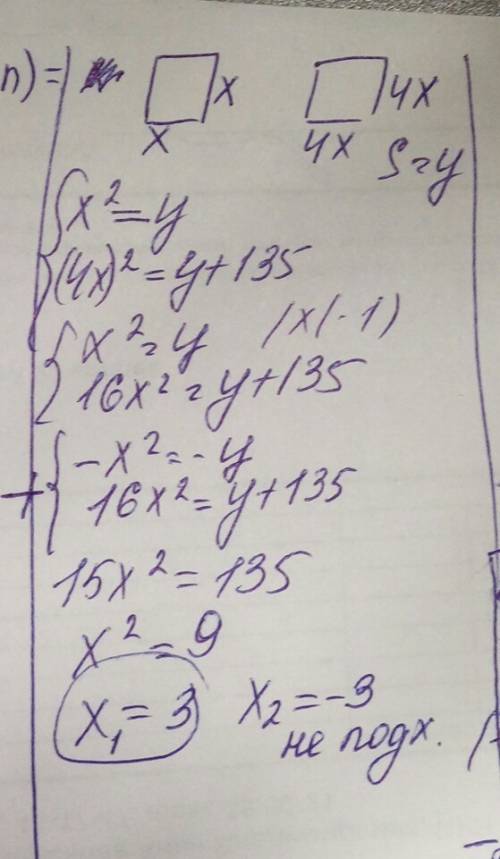 n) =
x
4x
x
4x
S = y
x² = y
(4x)² = y + 135
x² = y /x(-1)
16x² = y + 135
-x² = -y
+
16x² = y + 135
15x² = 135
x² = 9
x₁ = 3 x₂ = -3
не подх.